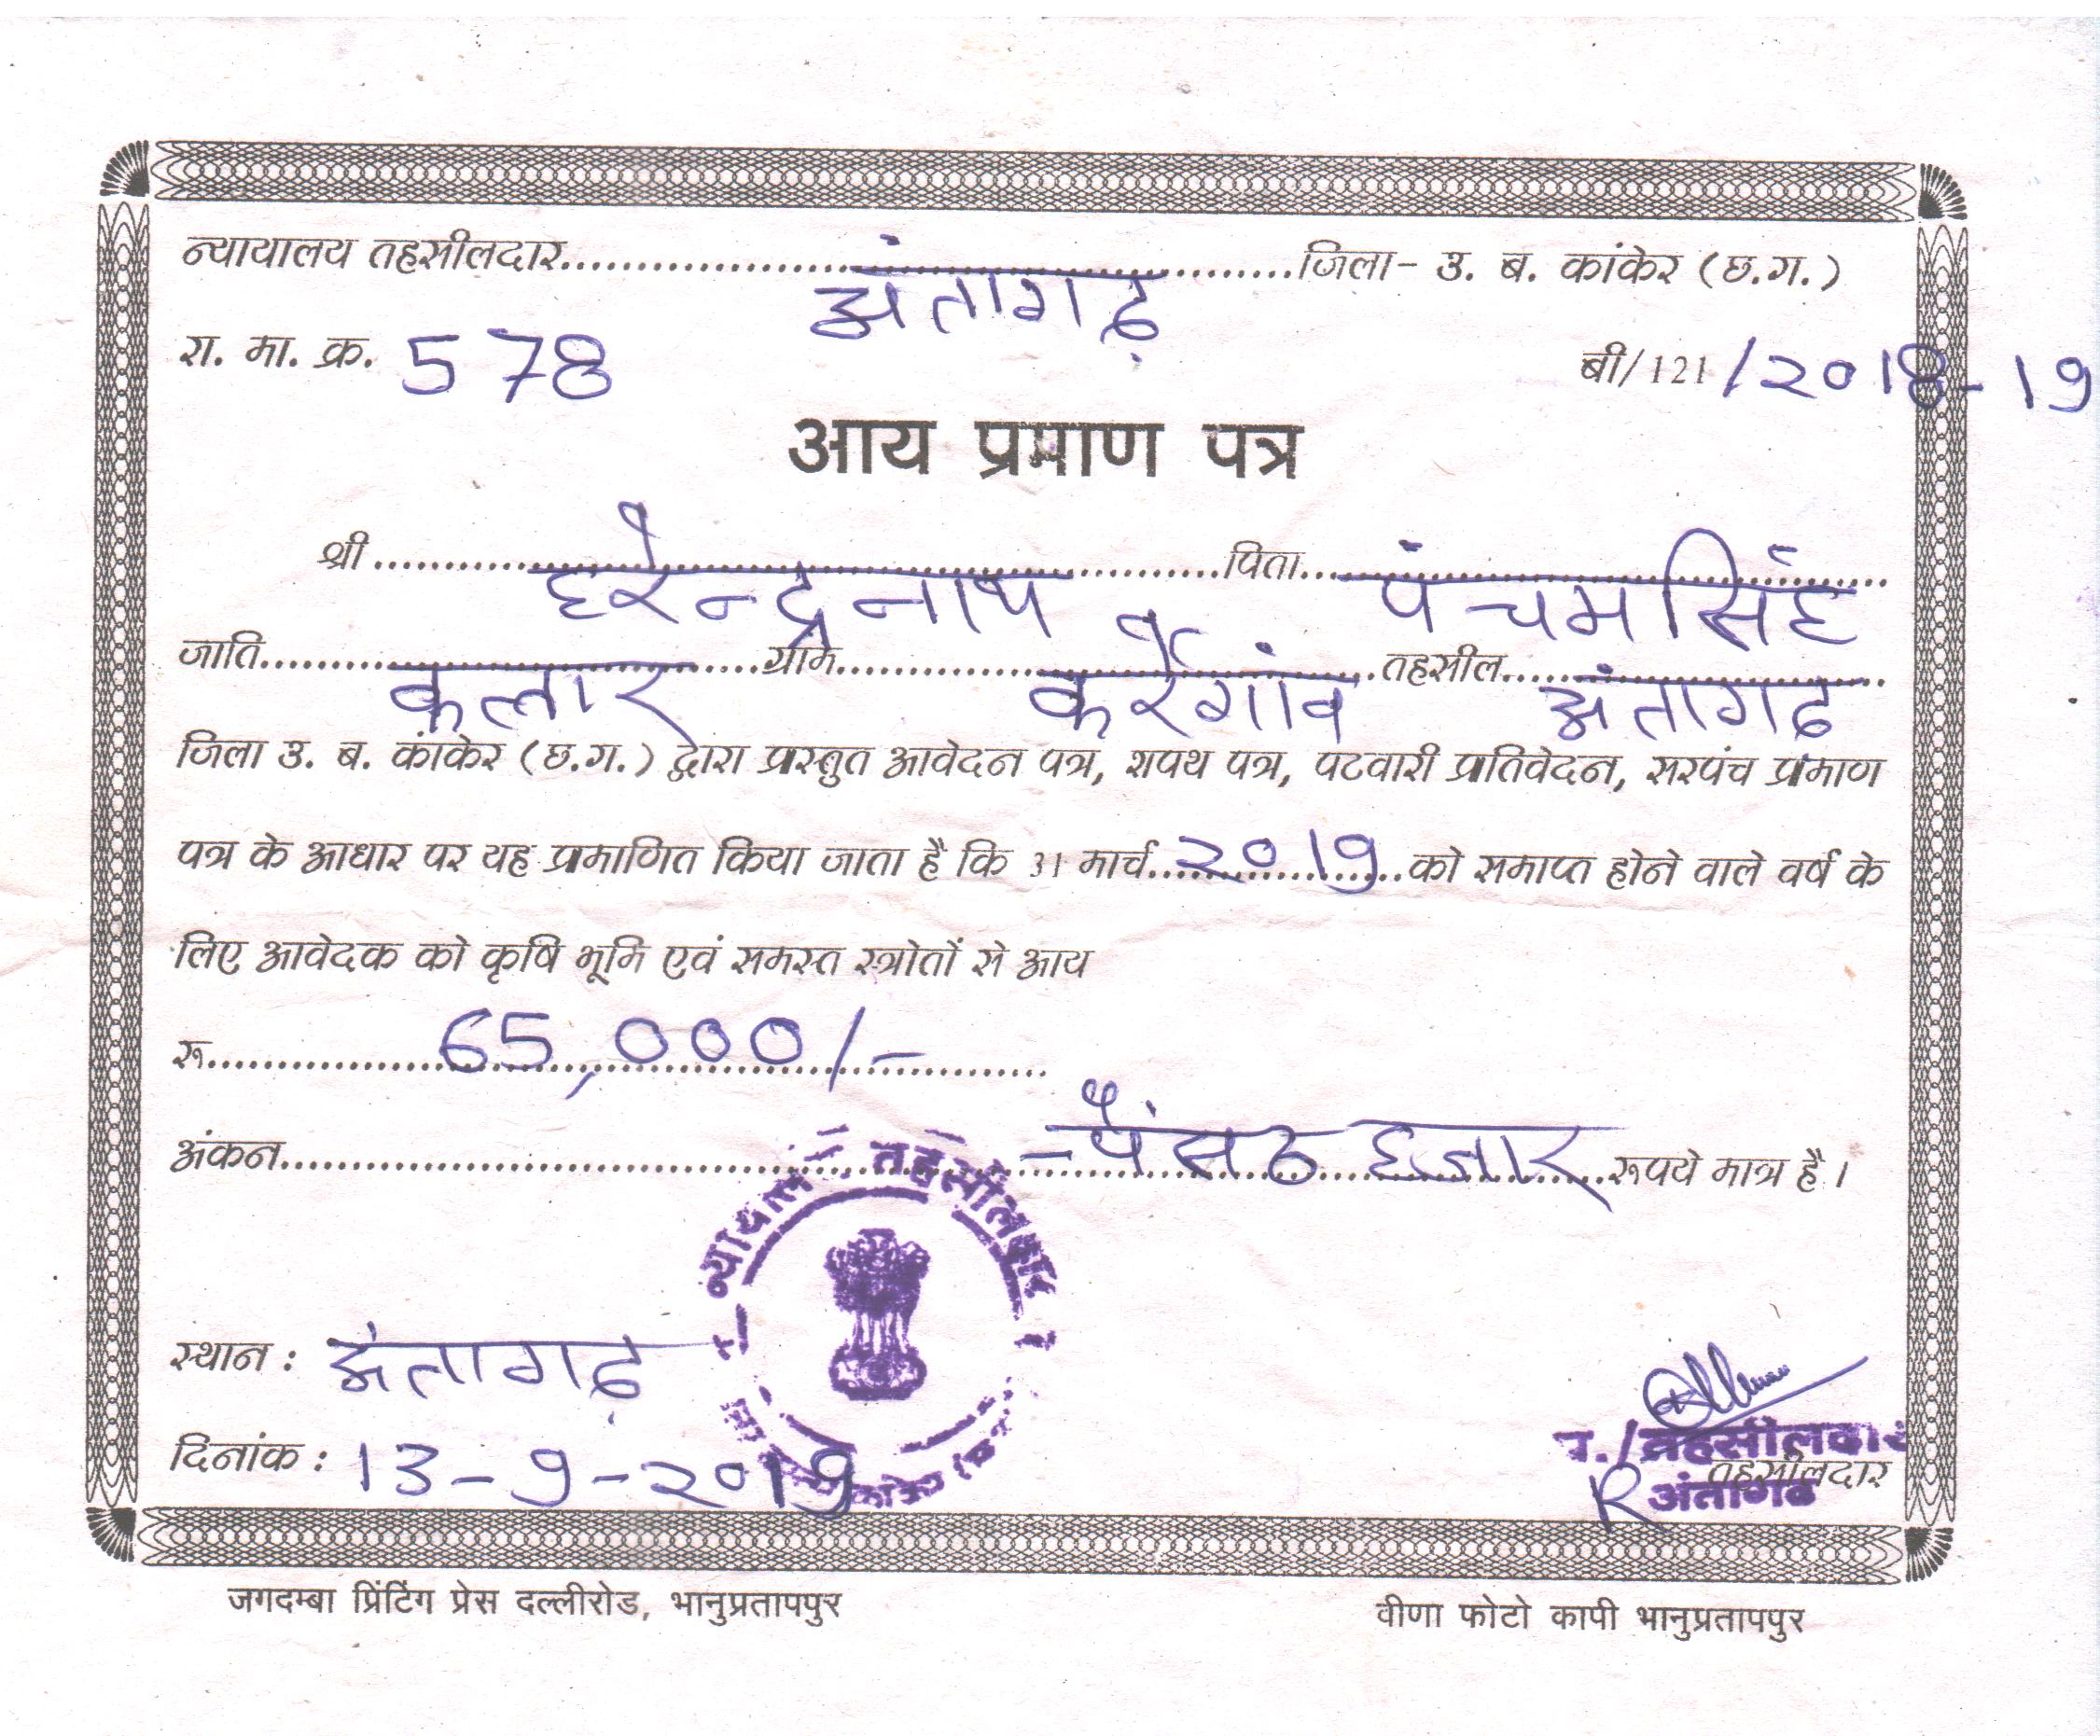 न्यायालय तहसीलदार अंतागढ़ जिला- उ. ब. कांकेर (छ.ग.)
रा. मा. क्र. 578 बी/121/2018-19
आय प्रमाण पत्र
श्री हरेन्द्रनाथ पिता पंचमसिंह
जाति कलार ग्राम करेगांव तहसील अंतागढ
जिला उ. ब. कांकेर (छ.ग.) द्वारा प्रस्तुत आवेदन पत्र, शपथ पत्र, पटवारी प्रतिवेदन, सरपंच प्रमाण
पत्र के आधार पर यह प्रमाणित किया जाता है कि 31 मार्च 2019 को समाप्त होने वाले वर्ष के
लिए आवेदक को कृषि भूमि एवं समस्त स्त्रोतों से आय
रू. 65,000/-
अंकन -पैंसठ हजार रूपये मात्र है।
तहसीलदार
स्थान : अंतागढ़
दिनांक : 13-9-2019
तहसीलदार
तहसीलदार
अंतागढ
जगदम्बा प्रिंटिंग प्रेस दल्लीरोड, भानुप्रतापपुर वीणा फोटो कापी भानुप्रतापपुर